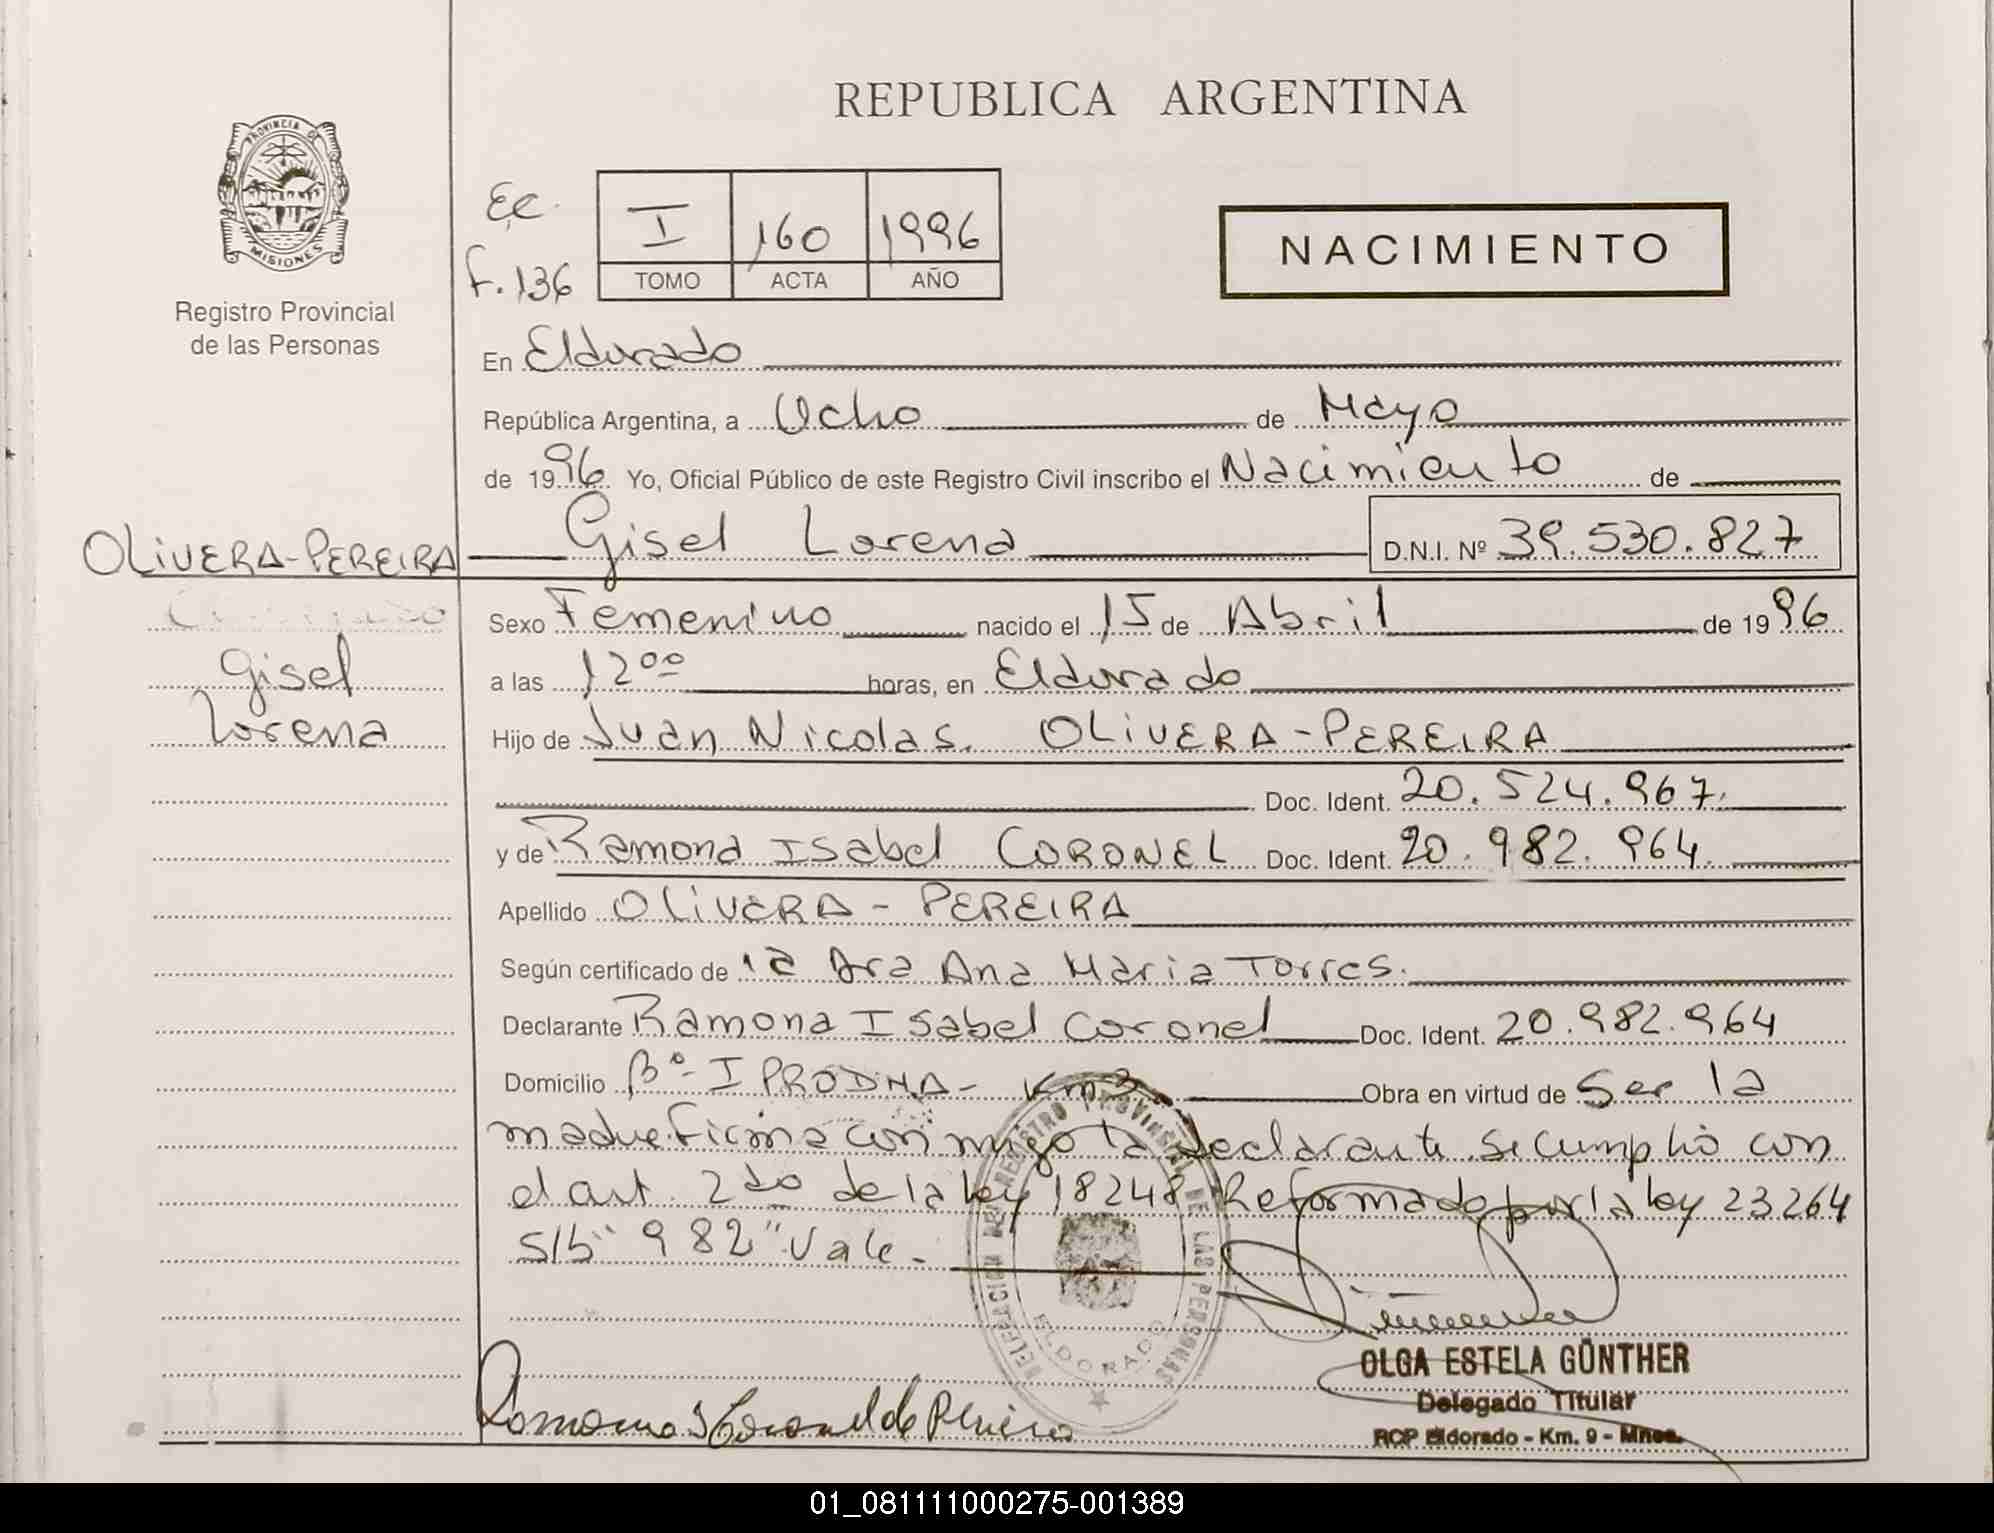 REPUBLICA ARGENTINA
PROVINCIA DE
MISIONES
Registro Provincial
de las Personas
F. 136
I 160 1996
TOMO ACTA AÑO
NACIMIENTO
En Eldorado
República Argentina, a Ocho de Mayo
de 1996 Yo, Oficial Público de este Registro Civil inscribo el Nacimiento de
OLIVERA-PEREIRA Gisel Lorena D.N.I. Nº 39.530.827
Sexo Femenino nacido el 15 de Abril de 1996
Gisel
a las 12 00 horas, en Eldorado
Lorena
Hijo de Juan Nicolas. OLIVERA-PEREIRA
Doc. Ident. 20.524.967.
y de Ramona Isabel CORONEL Doc. Ident. 20.982.964.
Apellido OLIVERA - PEREIRA
Según certificado de la Dra Ana Maria Torres.
Declarante Ramona Isabel Coronel Doc. Ident. 20.982.964
Domicilio Bº- IPRODHA- Km 3. Obra en virtud de Ser la
madre. Firma con migo la declarante. Se Cumplió con
el art. 2do de la ley 18248 Reformado por la ley 23264
S/b "982" Vale.-
DELEGACION DEL REGISTRO PROVINCIAL DE LAS PERSONAS
ELDORADO
OLGA ESTELA GÜNTHER
Delegado Titular
RCP Eldorado - Km. 9 - Mnes.
Ramona I Coronel de Pereira
01_081111000275-001389